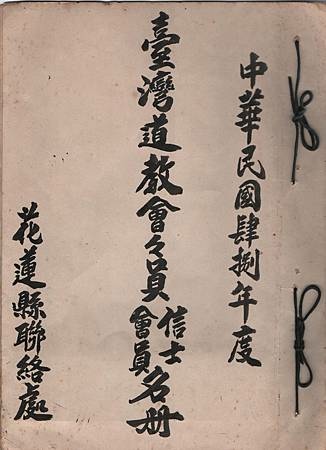 中華民國肆捌年度
臺灣道教會々員信士會員名册
花蓮縣聯絡處